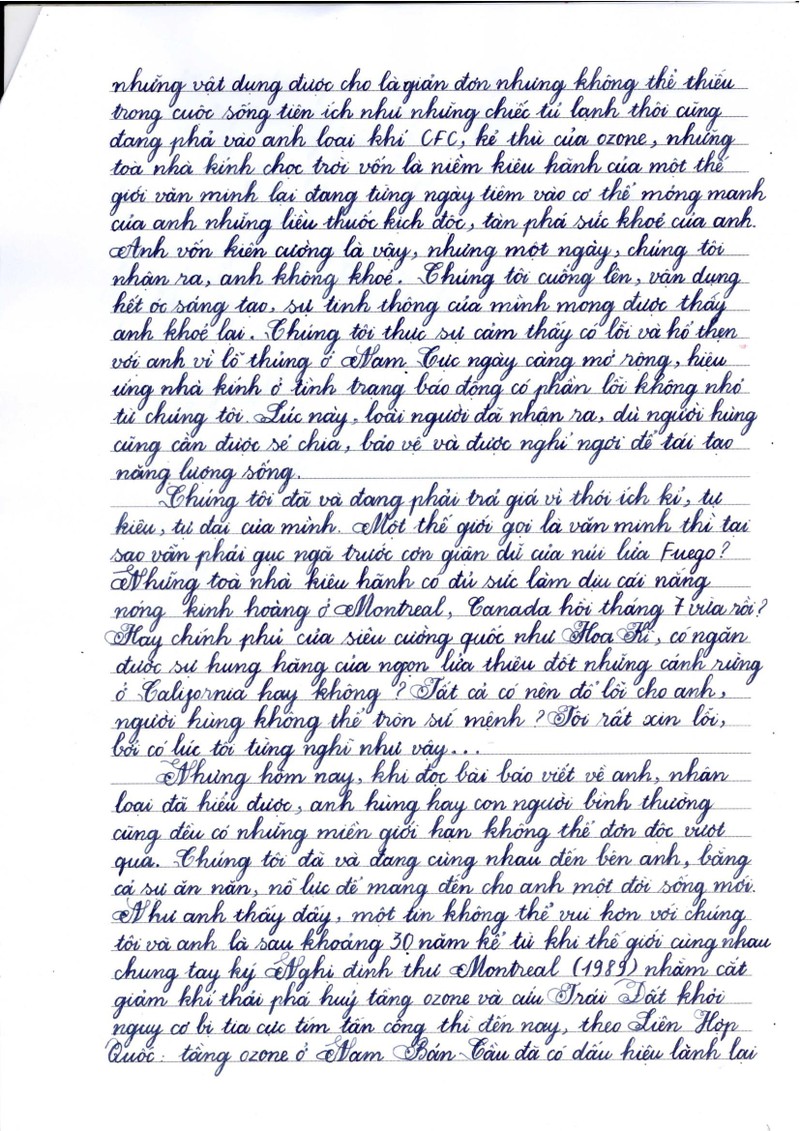 những vật dụng được cho là giản đơn nhưng không thể thiếu
trong cuộc sống tiện ích như những chiếc tủ lạnh thôi cũng
đang phả vào anh loại khí CFC, kẻ thù của ozone, những
toà nhà kính chọc trời vốn là niềm kiêu hãnh của một thế
giới văn minh lại đang từng ngày tiêm vào cơ thể mỏng manh
của anh những liều thuốc kịch độc, tàn phá sức khoẻ của anh.
Anh vốn kiên cường là vậy, nhưng một ngày, chúng tôi
nhận ra, anh không khoẻ. Chúng tôi cuống lên, vận dụng
hết óc sáng tạo, sự tinh thông của mình mong được thấy
anh khoẻ lại. Chúng tôi thực sự cảm thấy có lỗi và hổ thẹn
với anh vì lỗ thủng ở Nam Cực ngày càng mở rộng, hiệu
ứng nhà kính ở tình trạng báo động có phần lỗi không nhỏ
từ chúng tôi. Lúc này, loài người đã nhận ra, dù người hùng
cũng cần được sẻ chia, bảo vệ và được nghỉ ngơi để tái tạo
năng lượng sống.
Chúng tôi đã và đang phải trả giá vì thói ích kỉ, tự
kiêu, tự đại của mình. Một thế giới gọi là văn minh thì tại
sao vẫn phải gục ngã trước cơn giận dữ của núi lửa Fuego?
Những toà nhà kiêu hãnh có đủ sức làm dịu cái nắng
nóng kinh hoàng ở Montreal, Canada hồi tháng 7 vừa rồi?
Hay chính phủ của siêu cường quốc như Hoa Kì, có ngăn
được sự hung hăng của ngọn lửa thiêu đốt những cánh rừng
ở California hay không? Tất cả có nên đổ lỗi cho anh,
người hùng không thể tròn sứ mệnh? Tôi rất xin lỗi,
bởi có lúc tôi từng nghĩ như vậy...
Nhưng hôm nay, khi đọc bài báo viết về anh, nhân
loại đã hiểu được, anh hùng hay con người bình thường
cũng đều có những miền giới hạn không thể đơn độc vượt
qua. Chúng tôi đã và đang cùng nhau đến bên anh, bằng
cả sự ăn năn, nỗ lực để mang đến cho anh một đời sống mới.
Như anh thấy đấy, một tin không thể vui hơn với chúng
tôi và anh là sau khoảng 30 năm kể từ khi thế giới cùng nhau
chung tay ký Nghị định thư Montreal (1989) nhằm cắt
giảm khí thải phá huỷ tầng ozone và cứu Trái Đất khỏi
nguy cơ bị tia cực tím tấn công thì đến nay, theo Liên Hợp
Quốc: tầng ozone ở Nam Bán Cầu đã có dấu hiệu lành lại